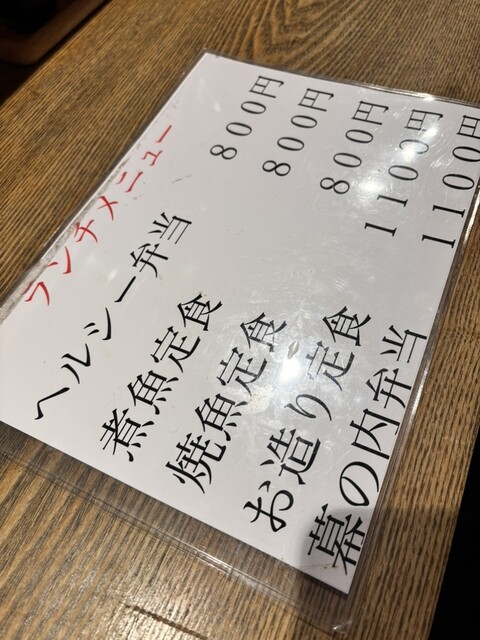 ランチメニュー
ヘルシー弁当 800円
煮魚定食 800円
焼魚定食 800円
お造り定食 1100円
幕の内弁当 1100円